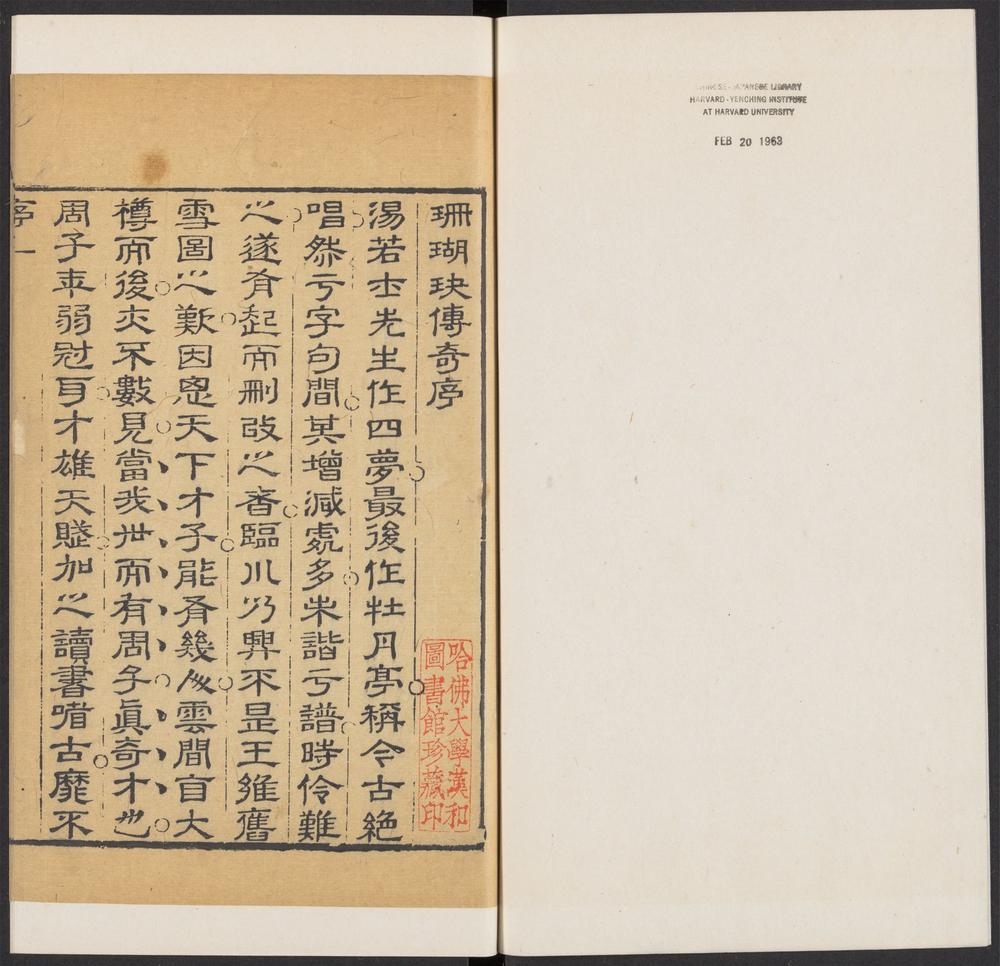 CHINESE-JAPANESE LIBRARY
HARVARD-YENCHING INSTITUTE
AT HARVARD UNIVERSITY
FEB 20 1963
珊瑚玦傳奇序
湯若士先生作四夢最後作牡丹亭稱今古絶
唱然于字句間其增減處多未諧于譜時伶難
之遂有起而刪改之者臨川乃興不是王維舊
雪圖之歎因思天下才子能有幾人雲間自大
樽而後亦不數見當我世而有周子眞奇才也
周子年弱冠耳才雄天賦加之讀書嗜古靡不
序一
哈佛大學漢和
圖書館珍藏印